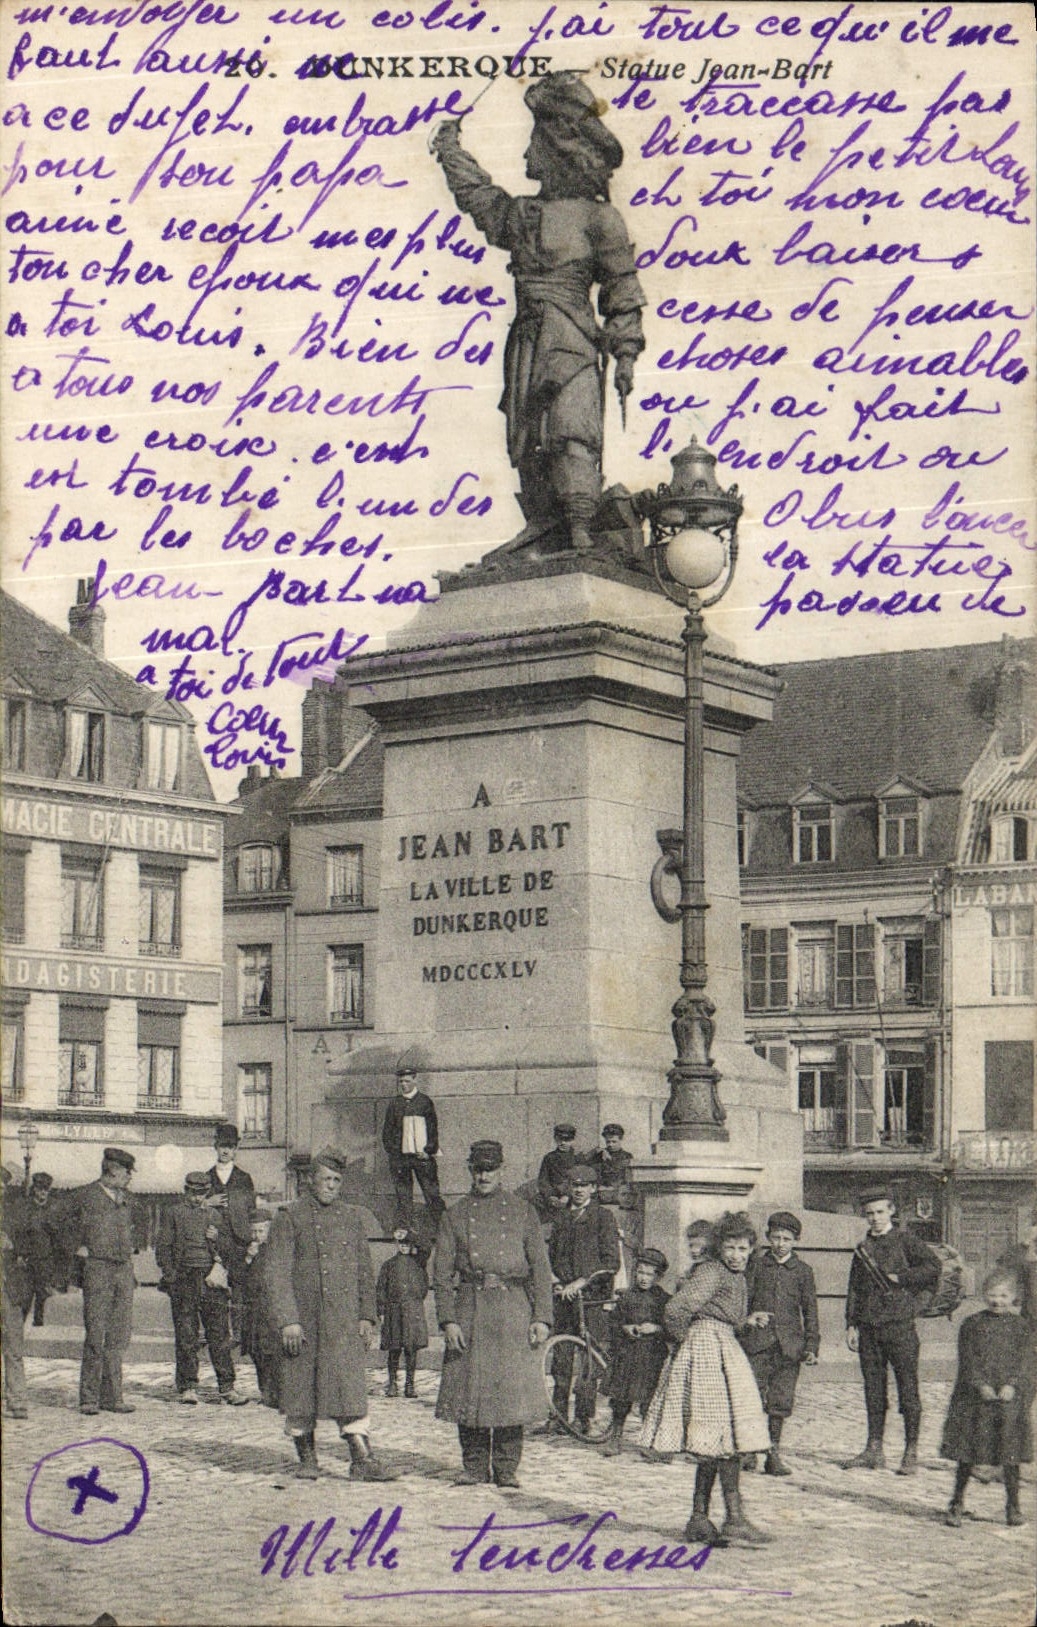 m'envoyer un colis. j'ai tout ce qu'il me
faut aussi ne te traccasse pas
26. DUNKERQUE — Statue Jean-Bart
a ce sujet. embrasse bien le petit Lou
pour son papa et toi mon coeur
aimé recoit mes plus doux baisers
ton cher epoux qui ne cesse de penser
a toi Louis. Bien des choses aimables
a tous nos parents ou j'ai fait
une croix. c'est l'endroit ou
est tombé l'un des Obus lancer
par les boches. la statue
Jean-Bart na pas eu de
mal.
a toi de tout
Coeur
Louis
MACIE CENTRALE
NDAGISTERIE
A
JEAN BART
LA VILLE DE
DUNKERQUE
MDCCCXLV
LABAN
A L
Mille tendresses